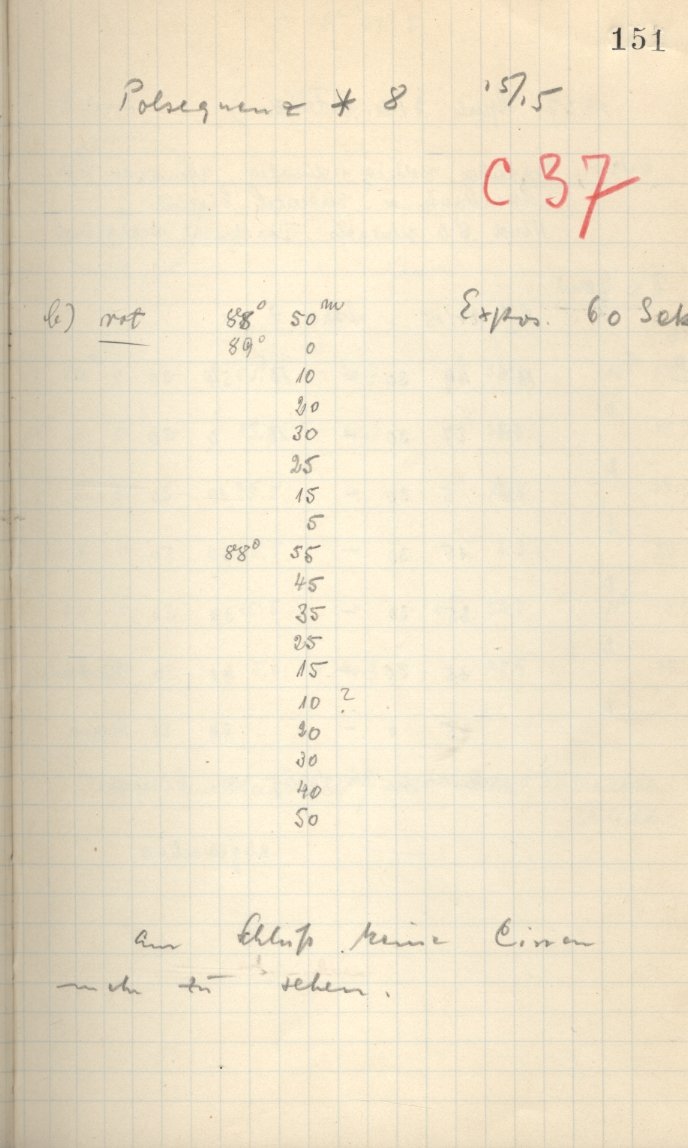 151
Polsequenz * 8 15/15
C 37
b) rot 88° 50m Expos. 60 Sek
89° 0
10
20
30
25
15
5
88° 55
45
35
25
15
10 ?
20
30
40
50
am Schluß keine Cirren
mehr zu sehen.